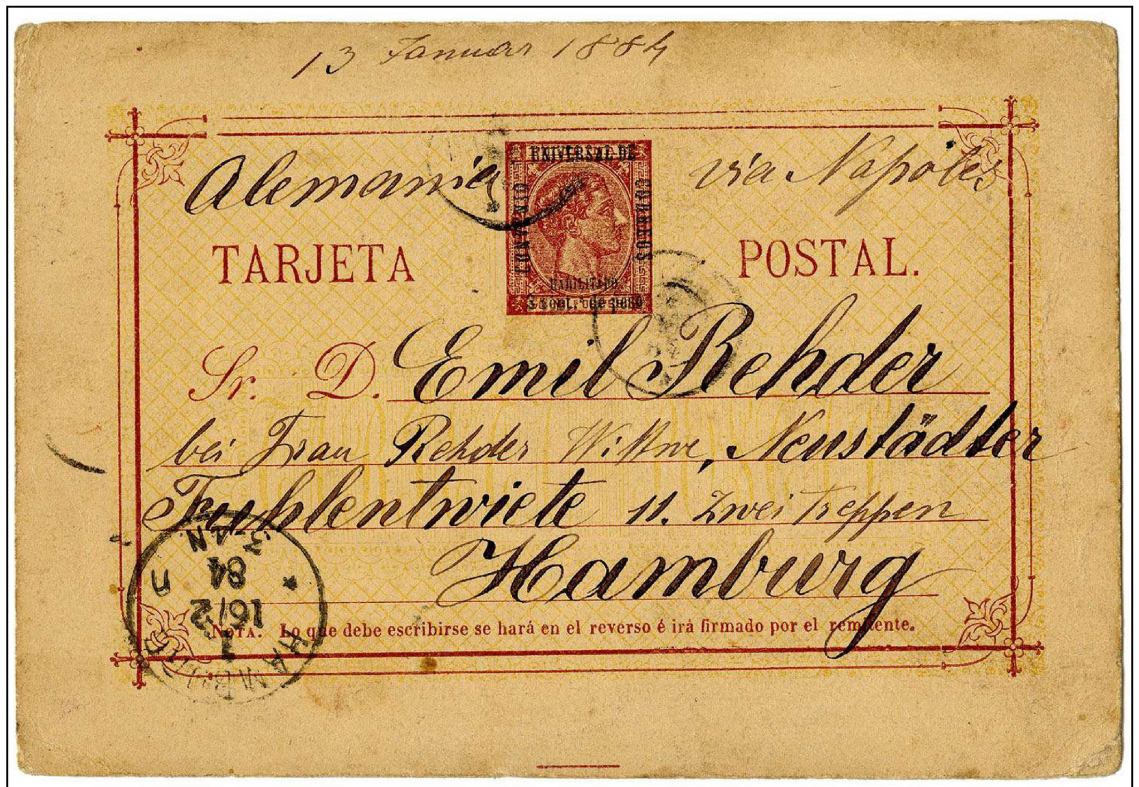 13 Januar 1884
Alemania
via Napoles
CONVENIO UNIVERSAL DE CORREOS
HABILITADO
TARJETA POSTAL.
Sr. D. Emil Rehder
bei Frau Rehder Wittwe, Neustädter
Fuhlentwiete 11. Zwei Treppen
Hamburg
NOTA. Lo que debe escribirse se hará en el reverso é irá firmado por el remitente.
HAMBURG
1
16/2
84
3-4N